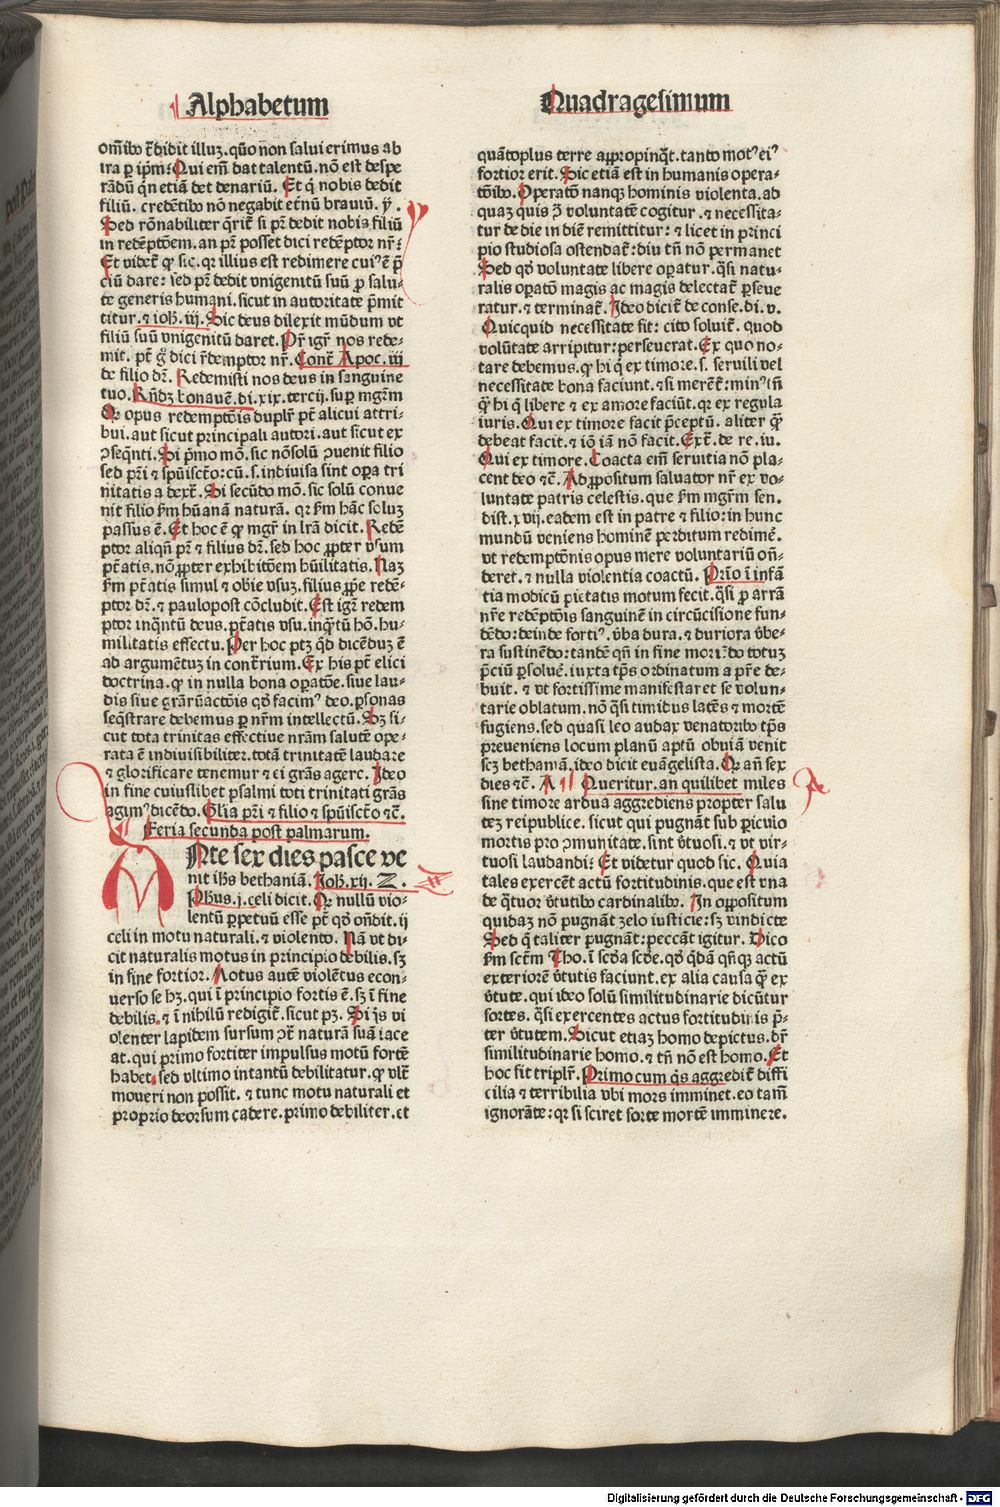 Alphabetum
om̄ibꝰ t̄didit illuz. qūo non salui erimus ab
ira ꝑ ip̄m: Qui em̄ dat talentū. nō est despe
rādū qͥn etiā det denariū. Et qͥ nobis dedit
filiū. credētibꝰ nō negabit et̄nū brauiū. ꝟ.
Sed rōnabiliter q̄rit̄ si pr̄ dedit nobis filiū
in redēptōem. an pr̄ posset dici redēptor nr̄:
Et videt̄ ꝙ sic. qr illius est redimere cuiꝰ ē p̄
ciū dare: sed pr̄ dedit vnigenitū suū ꝓ salu-
te generis humani. sicut in autoritate p̄mit
titur. ⁊ ioh̄. iij. Sic deus dilexit mūdum vt
filiū suū vnigenitū daret. Pr̄ igr̄ nos rede-
mit. pt̄ gͦ dici r̄demptor nr̄. Cont̄ Apoc. iij
de filio dr̄. Redemisti nos deus in sanguine
tuo. Rn̄dꝫ bonauē. di. xix. tercij. suꝑ mgr̄m
Qr opus redemptōis duplr̄ pt̄ alicui attri-
bui. aut sicut principali autori. aut sicut ex
ꝯseqn̄ti. Si p̄mo mō. sic nōsolū ꝯuenit filio
sed pr̄i ⁊ spūisct̄o: cū. s. indiuisa sint oꝑa tri
nitatis a dext̄. Si secūdo mō. sic solū conue
nit filio ẜm hūanā naturā. qr ẜm hāc soluz
passus ē. Et hoc ē ꝙ mgr̄ in lrā dicit. Redē
ptor aliqn̄ pr̄ ⁊ filius dr̄. sed hoc ꝓpter vsum
pt̄atis. nō ꝓpter exhibitōem hūilitatis. Naz
ẜm pt̄atis simul ⁊ obie vsuz. filius ꝓpe redē-
ptor dr̄. ⁊ paulopost cōcludit. Est igr̄ redem
ptor inqͣntū deus. pt̄atis vsu. inqͣtū hō. hu-
militatis effectu. Per hoc ptꝫ qͥd dicēduz ē
ad argumētuz in cont̄rium. Ex his pt̄ elici
doctrina. ꝙ in nulla bona oꝑatōe. siue lau-
dis siue grāꝝactōis qd̄ facimꝰ deo. ꝑsonas
seqͣstrare debemus ꝑ nr̄m intellectū. Sꝫ si-
cut tota trinitas effectiue nrām salutē ope-
rata ē indiuisibiliter. totā trinitatē laudare
⁊ glorificare tenemur ⁊ ei grās agere. Ideo
in fine cuiuslibet psalmi toti trinitati grās
agimꝰ dicēdo. Glīa pr̄i ⁊ filio ⁊ spūiscto ⁊c̄.
Feria secunda post palmarum.
ANte sex dies pasce ve
nit ih̄s bethaniā. Joh̄. xij. Z.
Phūs. j. celi dicit. Qr nullū vio-
lentū ꝑpetuū esse pt̄ qd̄ on̄dit. ij
celi in motu naturali. ⁊ violento. Nā vt di-
cit naturalis motus in principio debilis. sꝫ
in fine fortior. Motus autē violētus econ-
uerso se hꝫ. qui ī principio fortis ē. sꝫ ī fine
debilis. ⁊ ī nihilū redigit̄. sicut pꝫ. Si qͥs vi
olenter lapidem sursum ꝯt̄ naturā suā iace
at. qui primo fortiter impulsus motū fortē
habet. sed vltimo intantū debilitatur. ꝙ vlt̄
moueri non possit. ⁊ tunc motu naturali et
proprio deorsum cadere. primo debiliter. et
Quadragesimum
quātoplus terre appropinqͣt. tanto motꝰ eiꝰ
fortior erit. Sic etiā est in humanis opera-
tōibꝰ. Operatō nanqꝫ hominis violenta. ad
quaz quis ꝯͣ voluntatē cogitur. ⁊ necessita-
tur de die in diē remittitur: ⁊ licet in princi
pio studiosa ostendat̄: diu tn̄ nō permanet
Sed qd̄ voluntate libere oꝑatur. qͣsi natu-
ralis oꝑatō magis ac magis delectat̄ ꝑseue
ratur. ⁊ terminat̄. Ideo dicit̄ de conse. di. v.
Quicquid necessitate fit: cito soluit̄. quod
volūtate arripitur: perseuerat. Ex quo no-
tare debemus. ꝙ hi qͥ ex timore. s. seruili vel
necessitate bona faciunt. ⁊ si merēt̄: minꝰ tn̄
qͣꝫ hi qͥ libere ⁊ ex amore faciūt. qr ex regula
iuris. Qui ex timore facit p̄ceptū. aliter qͣꝫ
debeat facit. ⁊ iō iā nō facit. Ext̄. de re. iu.
Qui ex timore. Coacta em̄ seruitia nō pla-
cent deo ⁊c̄. Ad ꝓpositum saluator nr̄ ex vo-
luntate patris celestis. que ẜm mgr̄m sen.
dist. xvij. eadem est in patre ⁊ filio: in hunc
mundū veniens hominē perditum redimē.
vt redemptōnis opus mere voluntariū on̄-
deret. ⁊ nulla violentia coactū. Prio ī infā
tia modicū pietatis motum fecit. qͣsi ꝓ arrā
nr̄e redēptōis sanguinē in circūcisione fun-
dēdo: deinde fortiꝰ. v̄ba dura. ⁊ duriora v̄be-
ra sustinēdo: tandē qn̄ in fine moriēdo totuz
p̄ciū ꝑsoluē. iuxta tp̄s ordinatum a pr̄e de-
buit. ⁊ vt fortissime manifestaret se volun-
tarie oblatum. nō qͣsi timidus latēs ⁊ mortē
fugiens. sed quasi leo audax venatoribꝰ tp̄s
preueniens locum planū aptū obuiā venit
scꝫ bethaniā. ideo dicit euāgelista. Qr an̄ sex
dies ⁊c̄. A Queritur. an quilibet miles
sine timore ardua aggrediens propter salu
tez reipublice. sicut qui pugnāt sub ꝑiculo
mortis pro ꝯmunitate. sint v̄tuosi. ⁊ vt vir-
tuosi laudandi: Et videtur quod sic. Quia
tales exercēt actū fortitudinis. que est vna
de qͣtuor v̄tutibꝰ cardinalibꝰ. In oppositum
quidaz nō pugnāt zelo iusticie: sꝫ vindicte
Sed qͥ taliter pugnāt: peccāt igitur. Dico
ẜm sctm̄ Tho. ī scd̄a scd̄e. qd̄ qͥdā qn̄qꝫ actū
exteriorē v̄tutis faciunt. ex alia causa qͣꝫ ex
v̄tute. qui ideo solū similitudinarie dicūtur
fortes. qͣsi exercentes actus fortitudinis p̄-
ter v̄tutem. Sicut etiaz homo depictus. dr̄
similitudinarie homo. ⁊ tn̄ nō est homo. Et
hoc fit triplr̄. Primo cum qͥs aggredit̄ diffi
cilia ⁊ terribilia vbi mors imminet. eo tam̄
ignorāte: qr si sciret forte mortē imminere.
A
Digitalisierung gefördert durch die Deutsche Forschungsgemeinschaft - DFG